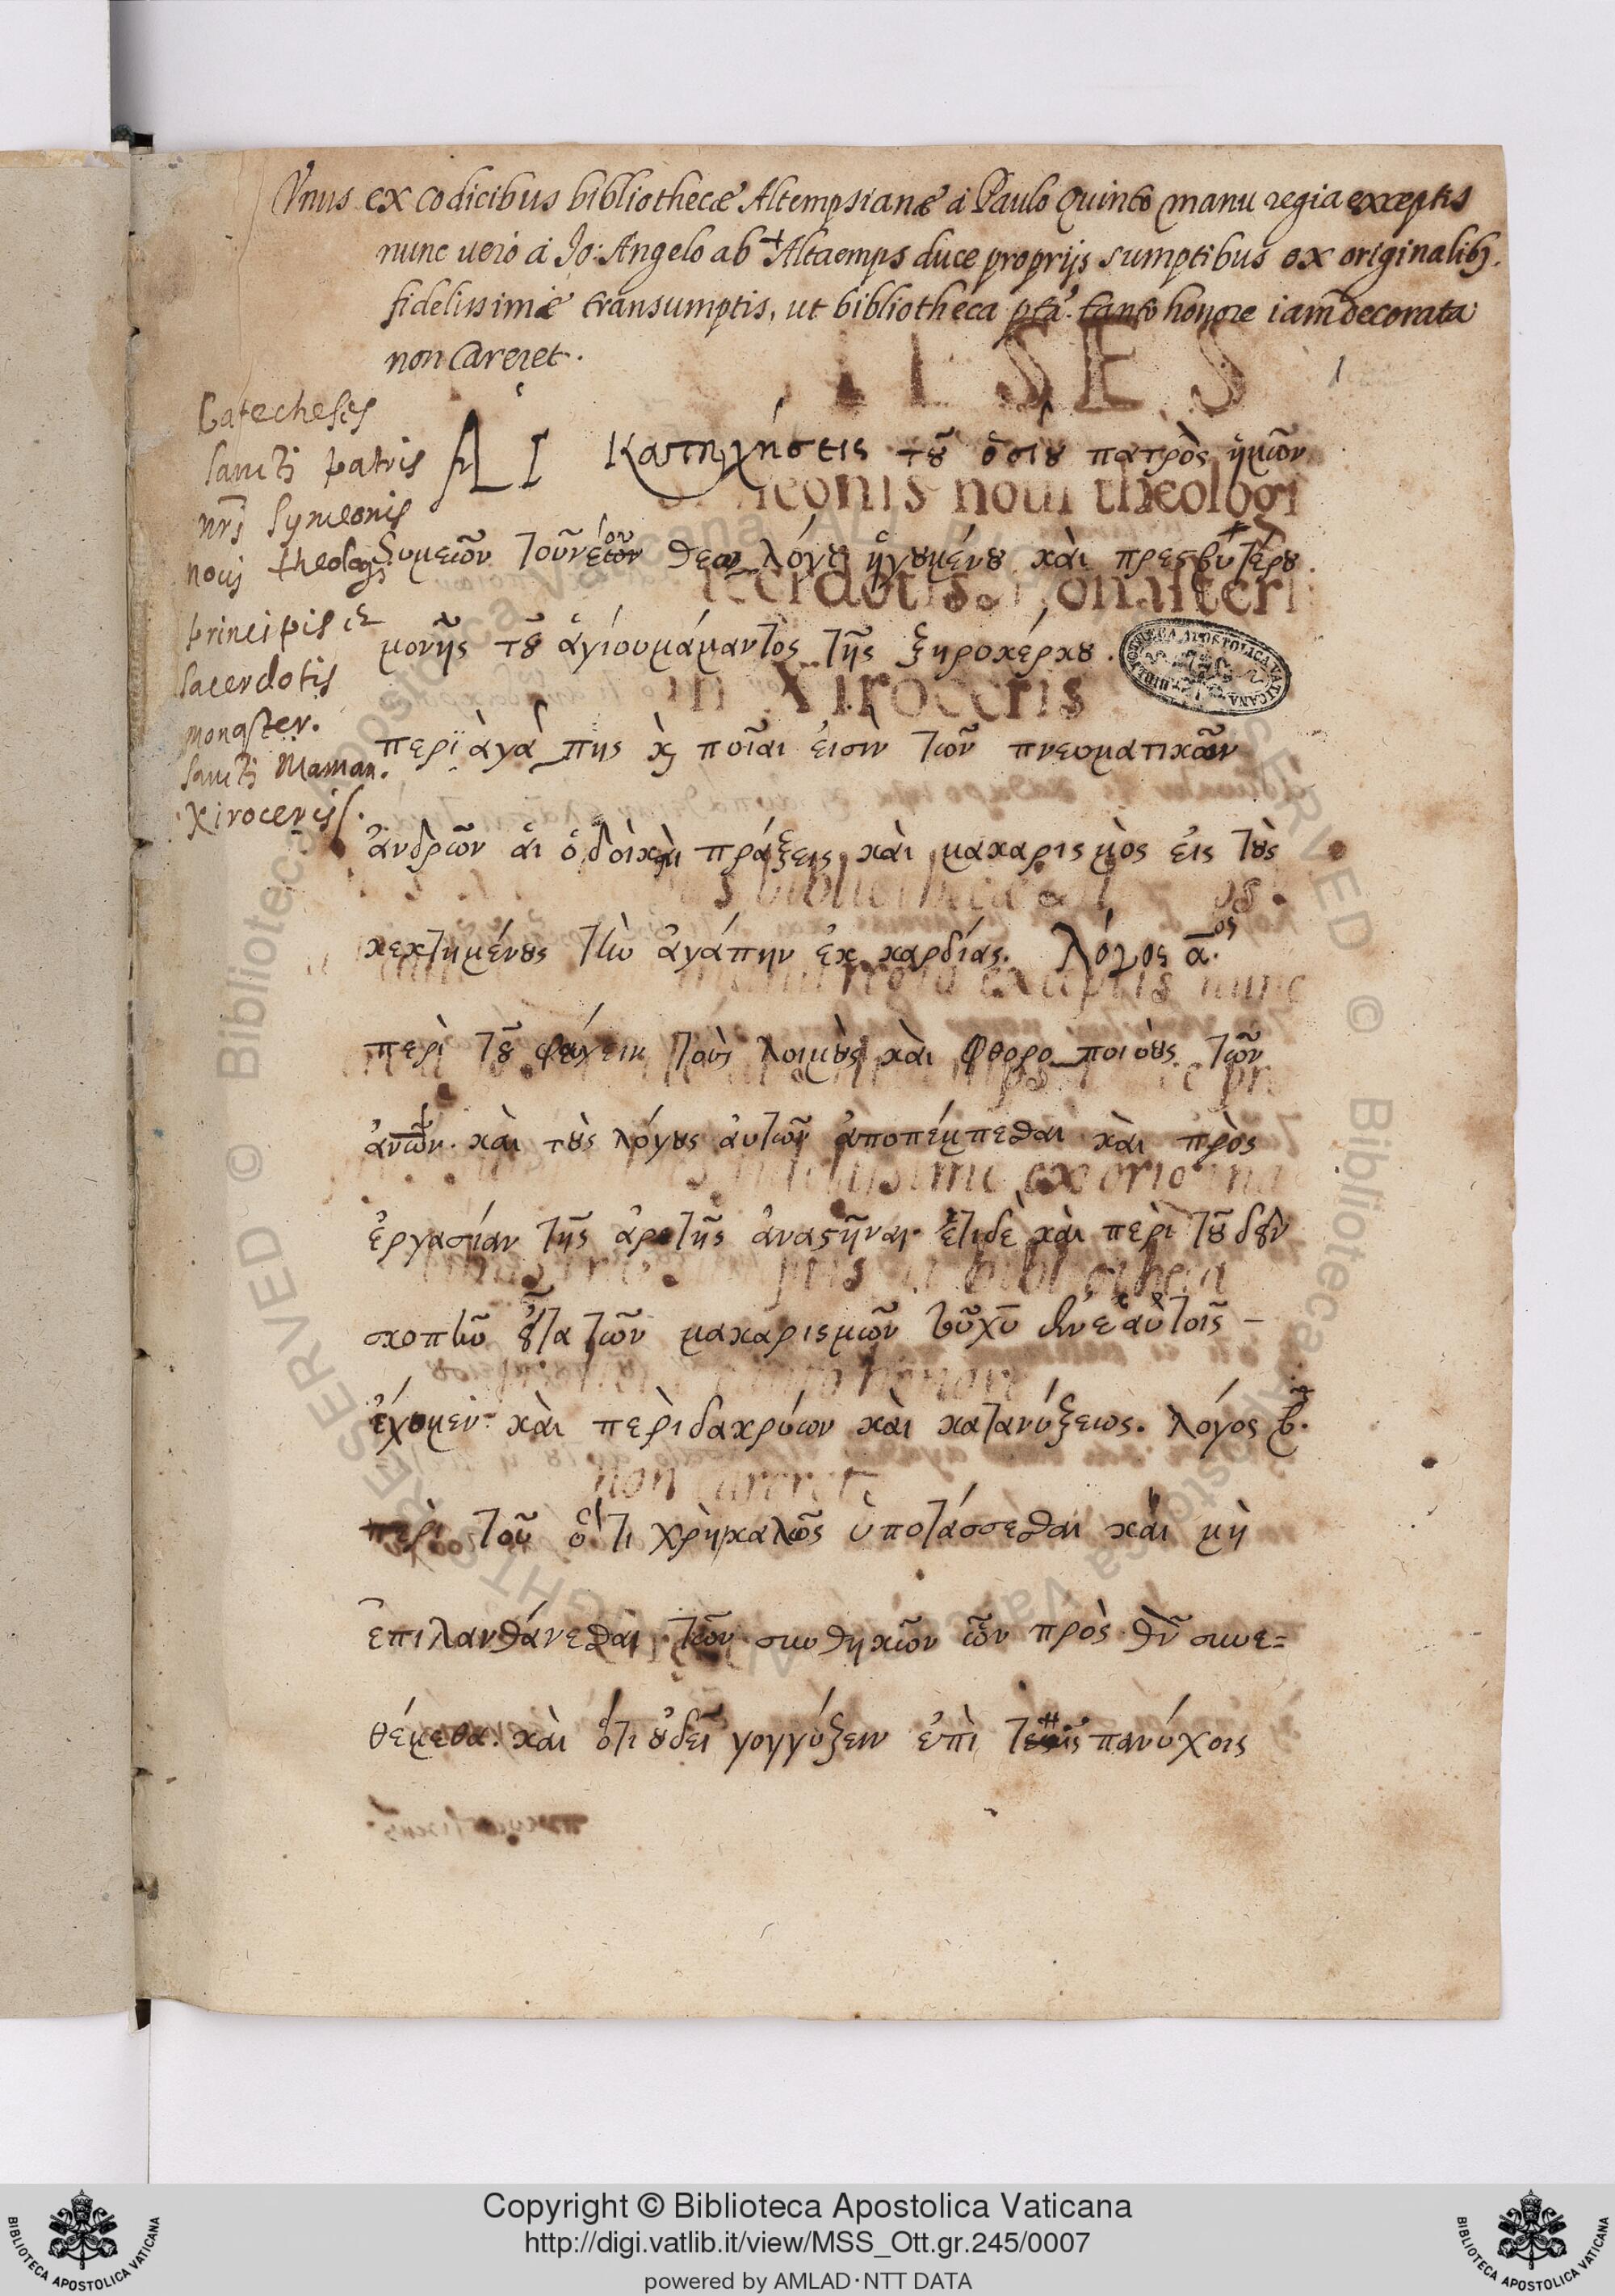 Vnus ex codicibus bibliothecæ Altempsianæ à Paulo Quinto manu regia exceptis
nunc uero à Jo: Angelo ab Altaemps duce proprijs sumptibus ex originalib;
fidelissimè transumptis, ut bibliotheca pta. tanto honore iam decorata
non careret.
1
Catecheses
sancti patris
nri Symeonis
noui theologi
principis et
sacerdotis
monaster.
sancti Maman.
Xirocercis.
ΑΙ Κατηχήσεις τȣ͂ ὁσίȣ πατρὸς ἡμῶν
Συμεὼν τοῦ νέου θεολόγȣ ἡγȣμένȣ καὶ πρεσβυτέρȣ
μονῆς τȣ͂ ἁγίου μάμαντος τῆς ξηροκέρκȣ.
περὶ ἀγάπης ϗ ποῖαι εἰσὶν τῶν πνευματικῶν
ἀνδρῶν αἱ ὁδοὶ καὶ πράξεις καὶ μακαρισμὸς εἰς τȣ̀ς
κεκτημένȣς τὴν ἀγάπην ἐκ καρδίας. λόγος α.ος
περὶ τȣ͂ φεύγειν τοὺς λοιμȣ̀ς καὶ φθοροποιοὺς τῶν
ἀνῶν. καὶ τȣ̀ς λόγȣς αὐτῶν ἀποπέμπεσθαι καὶ πρὸς
ἐργασίαν τῆς ἀρετῆς ἀναστῆναι. ἔτι δὲ καὶ περὶ τȣ͂ δεῖν
σκοπεῖν
τῶν μακαρισμῶν τοῦ χῦ ἐν ἑαυτοῖς –
ἔχομεν. καὶ περὶ δακρύων καὶ κατανύξεως. λόγος β.
περὶ τοῦ ὅτι χρὴ καλῶς ὑποτάσσεσθαι καὶ μὴ
ἐπιλανθάνεσθαι τῶν συνθηκῶν ὧν πρὸς θν συνε=
θέμεθα. καὶ ὅτι ȣ̓ δεῖ γογγύζειν ἐπὶ παννύχοις
Copyright © Biblioteca Apostolica Vaticana
http://digi.vatlib.it/view/MSS_Ott.gr.245/0007
powered by AMLAD·NTT DATA